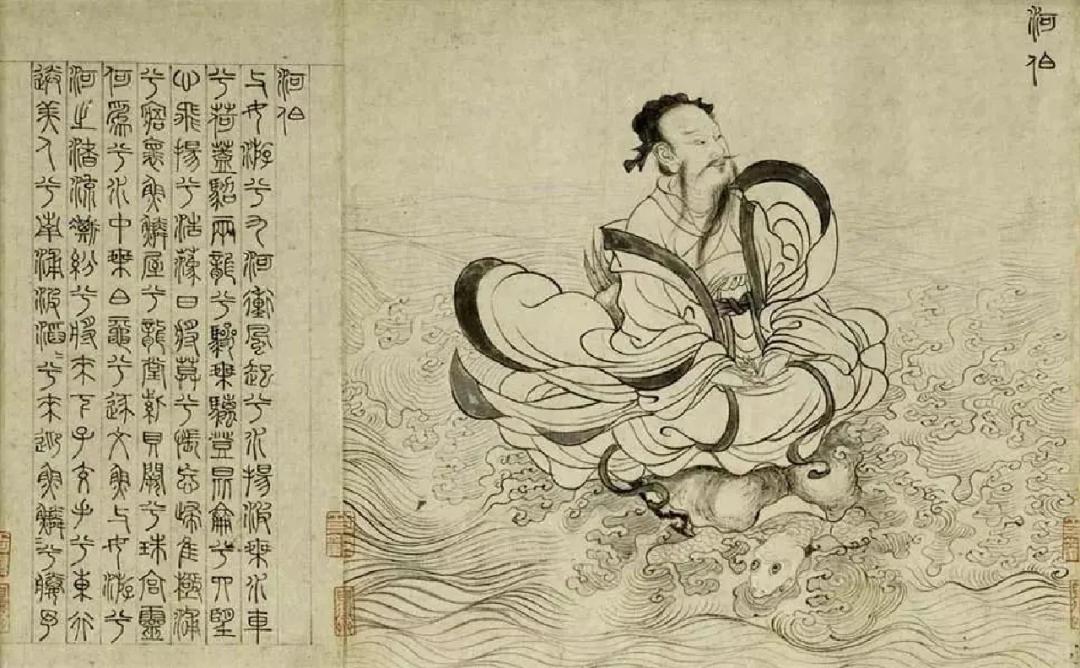 河伯
河伯
与女游兮九河衝風起兮水揚波乘水車
兮荷蓋駕兩龍兮驂乘螭登昆侖兮四望
心飛揚兮浩蕩日將莫兮悵忘歸隹極浦
兮寤懷魚鱗屋兮龍堂紫貝闕兮珠宮靈
何爲兮水中乘白黿兮逐文魚与女游兮
河之渚流澌紛兮將來下子交手兮東行
送美人兮南浦波滔〻兮來迎魚鱗〻兮媵予